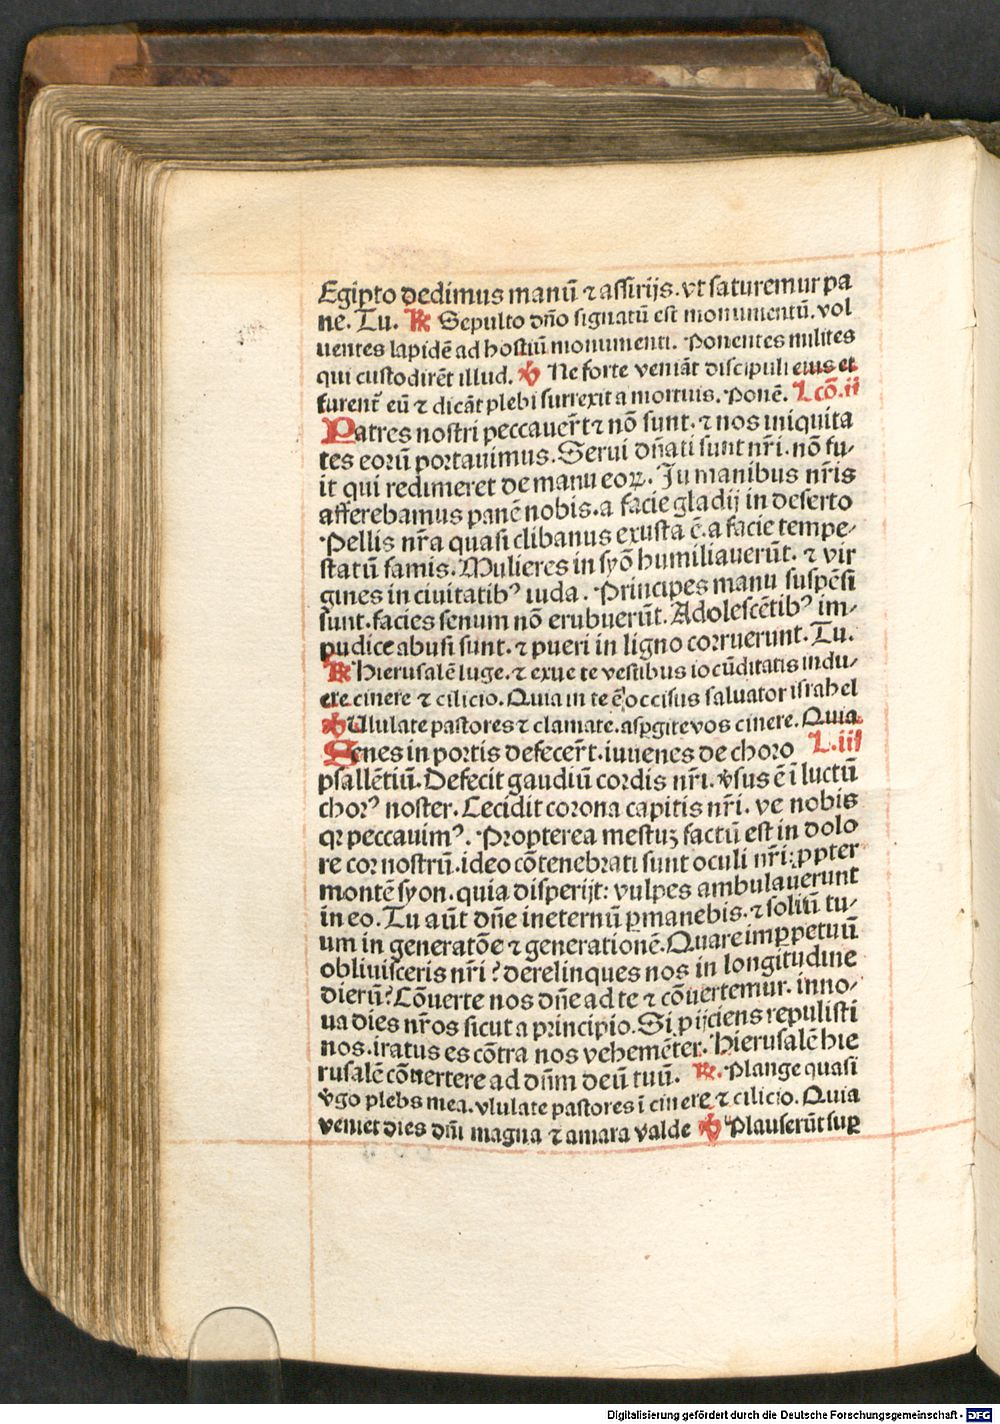 Egipto dedimus manū ⁊ assirijs. vt saturemur pa
ne. Tu. ℟ Sepulto dño signatū est monumentū. vol
uentes lapidē ad hostiū monumenti. Ponentes milites
qui custodirēt illud. ℣ Ne forte veniāt discipuli eius et
furent̄ eū ⁊ dicāt plebi surrexit a mortuis. Ponē. Lcō. ii
Patres nostri peccauer̄t ⁊ nō sunt. ⁊ nos iniquita
tes eorū portauimus. Serui dñati sunt nr̄i. nō fu⸗
it qui redimeret de manu eoꝝ. In manibus nr̄is
afferebamus panē nobis. a facie gladij in deserto
Pellis nr̄a quasi clibanus exusta ē. a facie tempe⸗
statū famis. Mulieres in syō humiliauerūt. ⁊ vir
gines in ciuitatibꝰ iuda. Principes manu suspēsi
sunt. facies senum nō erubuerūt. Adolescētibꝰ im⸗
pudice abusi sunt. ⁊ pueri in ligno corruerunt. Tu.
℟ Hierusalē luge. ⁊ exue te vestibus iocūditatis indu⸗
ere cinere ⁊ cilicio. Quia in te ē occisus saluator israhel
℣ Ululate pastores ⁊ clamate. aspgite vos cinere. Quia
Senes in portis defecer̄t. iuuenes de choro L. iii
psallētiū. Defecit gaudiū cordis nr̄i. v̓sus ē ī luctū
chorꝰ noster. Cecidit corona capitis nr̄i. ve nobis
qꝛ peccauimꝰ. Propterea mestuꝫ factū est in dolo
re cor nostrū. ideo cōtenebrati sunt oculi nr̄i: ꝓpter
montē syon. quia disperijt: vulpes ambulauerunt
in eo. Tu aūt dñe in eternū ꝑmanebis. ⁊ soliū tu⸗
um in generatōe ⁊ generationē. Quare imꝑpetuū
obliuisceris nr̄i? derelinques nos in longitudine
dierū? Cōuerte nos dñe ad te ⁊ cōuertemur. inno⸗
ua dies nr̄os sicut a principio. Si ꝓijciens repulisti
nos. iratus es cōtra nos vehemēter. Hierusalē hie
rusalē cōuertere ad dñm deū tuū. ℟. Plange quasi
v̓go plebs mea. vlulate pastores ī cinere ⁊ cilicio. Quia
veniet dies dñi magna ⁊ amara valde ℣ Plauserūt suꝑ
Digitalisierung gefördert durch die Deutsche Forschungsgemeinschaft - DFG